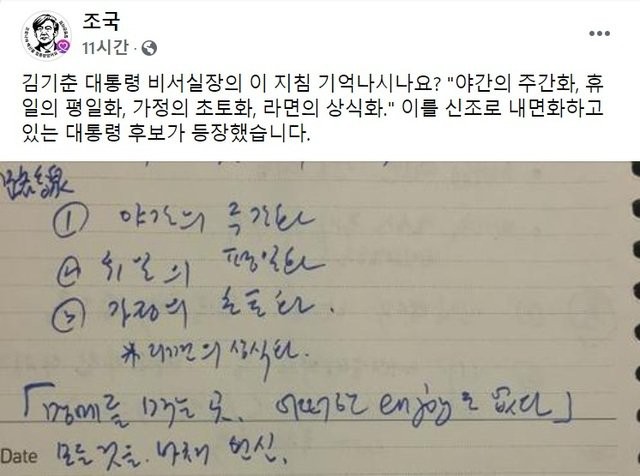 조국
11시간 ·
김기춘 대통령 비서실장의 이 지침 기억나시나요? "야간의 주간화, 휴
일의 평일화, 가정의 초토화, 라면의 상식화." 이를 신조로 내면화하고
있는 대통령 후보가 등장했습니다.
① 야간의 주간화
② 휴일의 평일화
③ 가정의 초토화.
※ 라면의 상식화.
「명예를 먹는 곳. 어떠한 enjoy도 없다」
Date 모든 것을 바쳐 헌신.